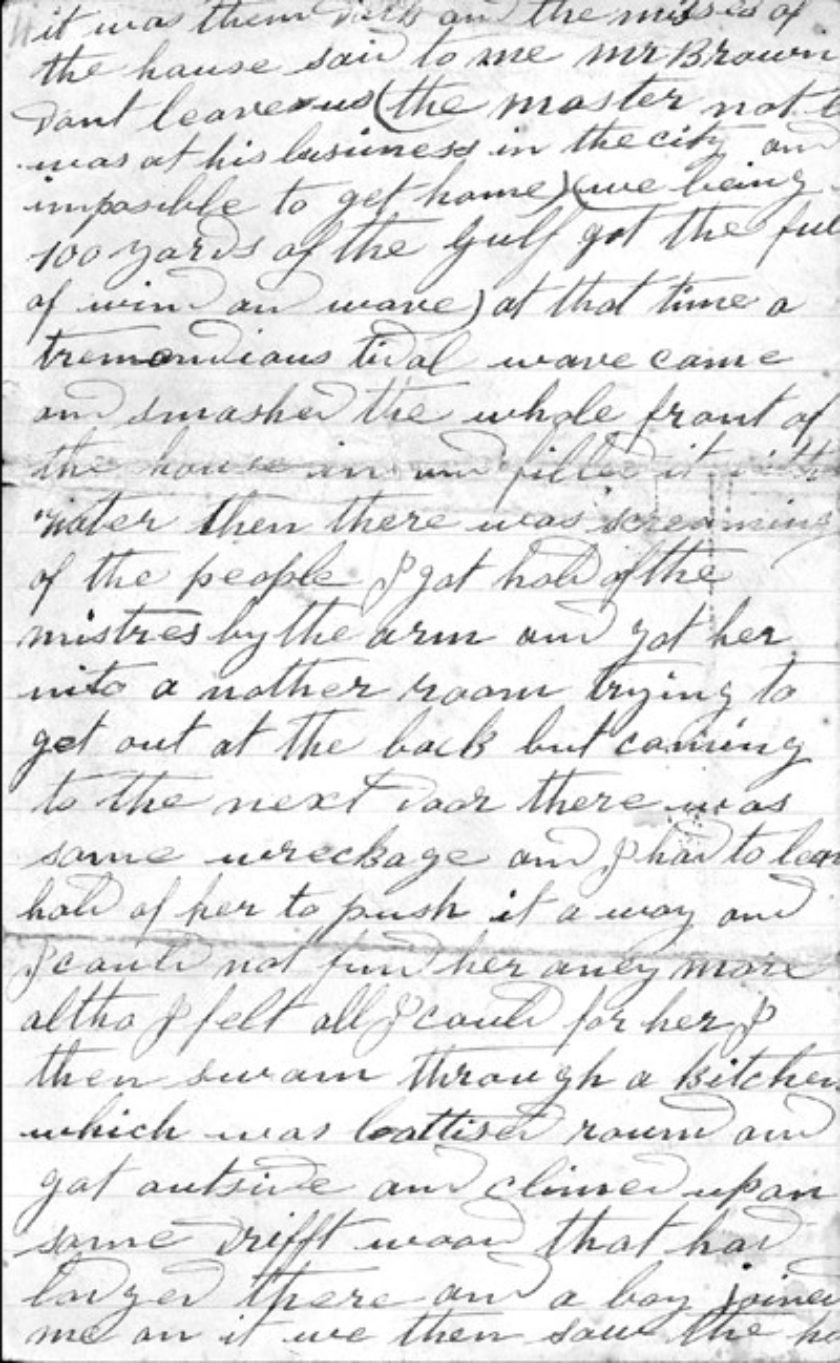 it was then dark and the misses of
the house said to me mr Brown
dont leave us (the master not
was at his business in the city and
imposible to get home) (we being
100 yards of the Gulf got the full
of wind and wave) at that time a
tremendious tidal wave came
and smashed the whole front of
the house in and filled it with
water then there was screaming
of the people I got hold of the
mistres by the arm and got her
into a nother room trying to
get out at the back but coming
to the next door there was
some wreckage and I had to leave
hold of her to push it a way and
I could not find her aney more
altho I felt all I could for her I
then swam through a kitchen
which was lattised round and
got outside and climed upon
some drifft wood that had
lodged there and a boy joined
me on it we then saw the